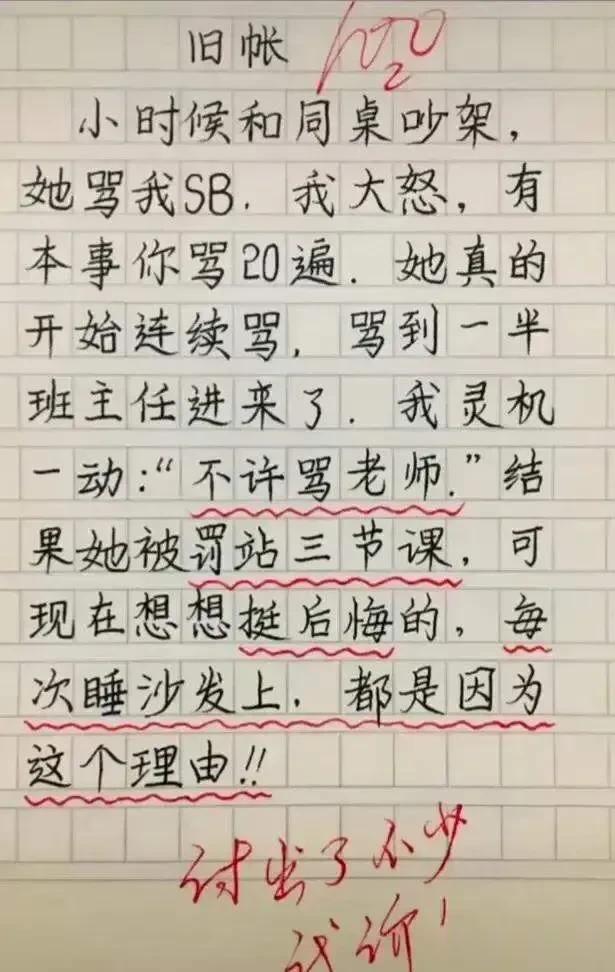 旧帐
100
小时候和同桌吵架，
她骂我SB. 我大怒，有
本事你骂20遍. 她真的
开始连续骂，骂到一半
班主任进来了. 我灵机
一动：“不许骂老师.”结
果她被罚站三节课，可
现在想想挺后悔的，每
次睡沙发上，都是因为
这个理由!!
付出了不少
代价!